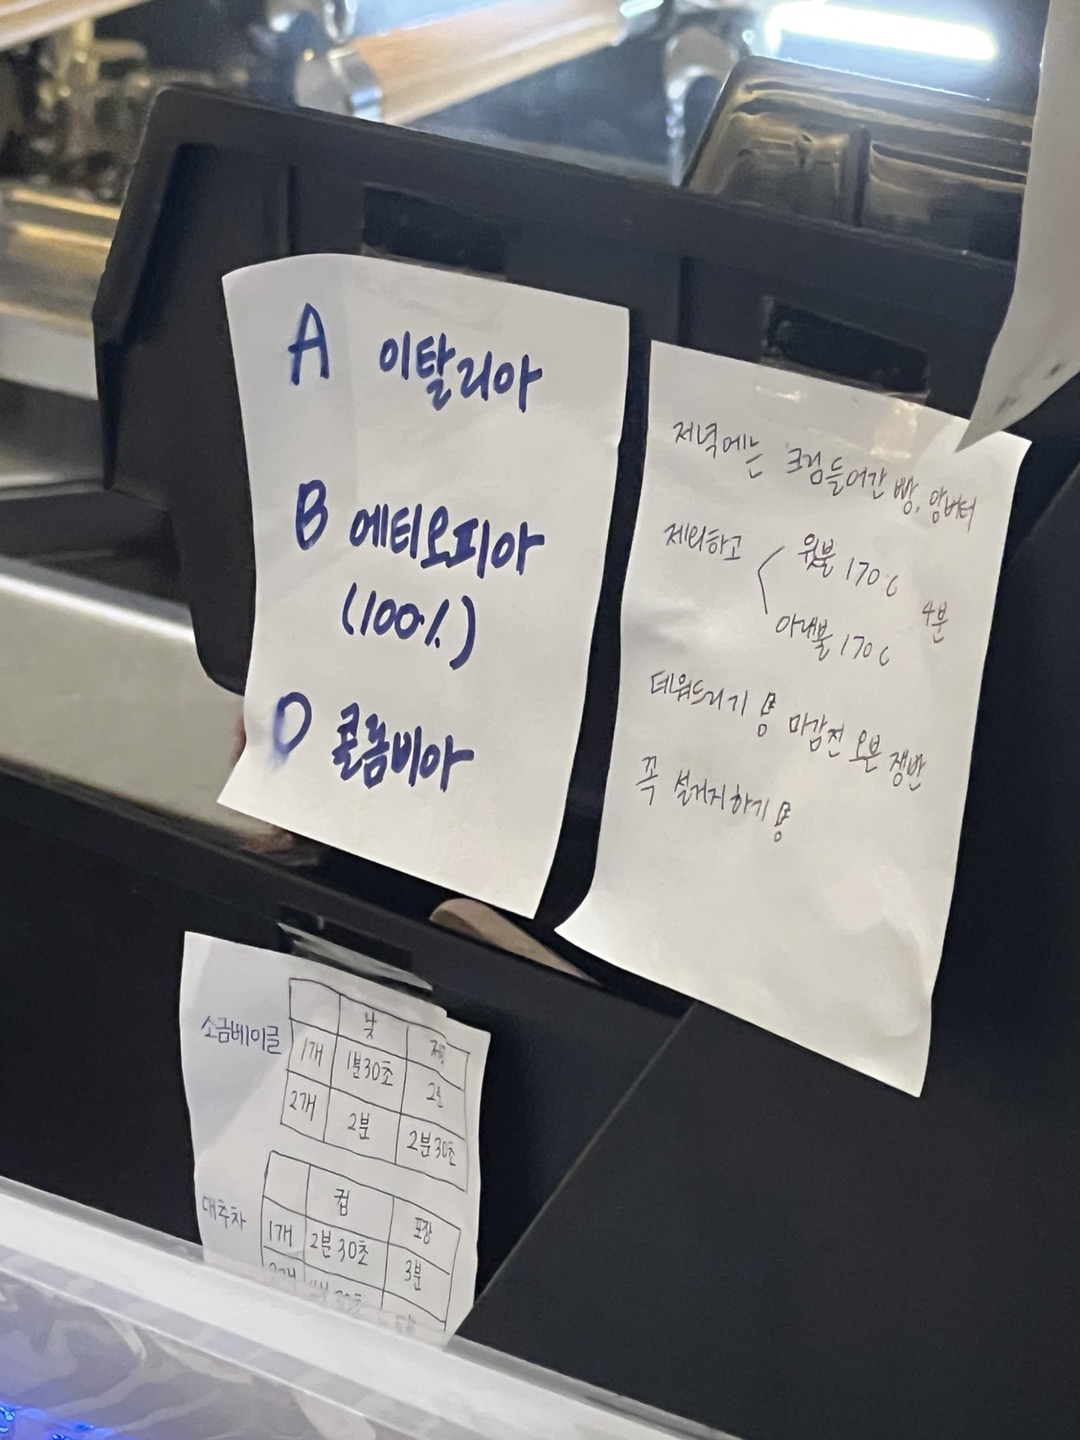 A 이탈리아
B 에티오피아
(100%)
D 콜롬비아
저녁에는 크림들어간 빵, 앙버터
제외하고
윗불 170c
아래불 170c
4분
데워드리기 용 마감전 오븐 쟁반
꼭 설거지하기 용
소금베이글
낮
1개 1분30초
2개 2분 2분30초
대추차
컵 포장
1개 2분 30초 3분
30초